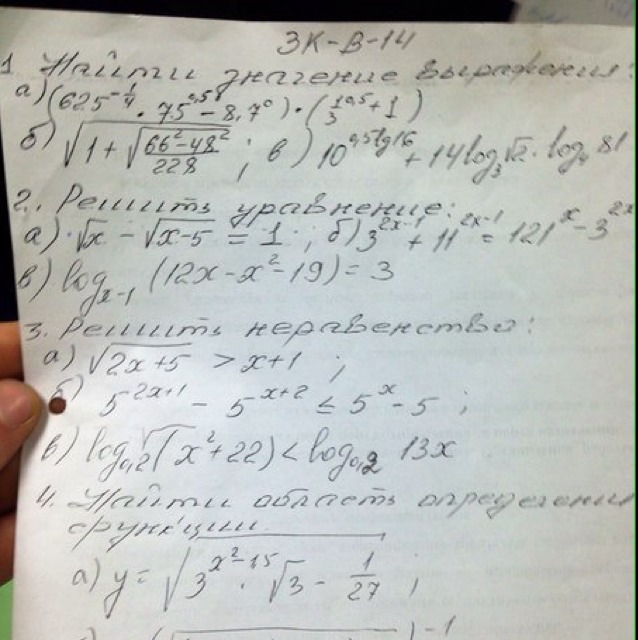 ЗК-В-14
1. Найти значение выражения:
а) (625^(-1/4) · 75^(0,5) - 8,7⁰) · (1/3^(0,5) + 1)
б) √(1 + √((66² - 48²)/228)) ; в) 10^(0,5 lg 16) + 14 log₃ √2 · log₄ 81
2. Решить уравнение:
а) √x - √(x-5) = 1 ; б) 3^(2x-1) + 11^(2x-1) = 121^x - 3^(2x)
в) log_(x-1) (12x - x² - 19) = 3
3. Решить неравенство:
а) √(2x+5) > x+1 ;
б) 5^(2x+1) - 5^(x+2) ≤ 5^x - 5 ;
в) log_(0,2) (x² + 22) < log_(0,2) 13x
4. Найти область определения
функции.
а) y = √(3^(x²-x·5) · √3 - 1/27) ;